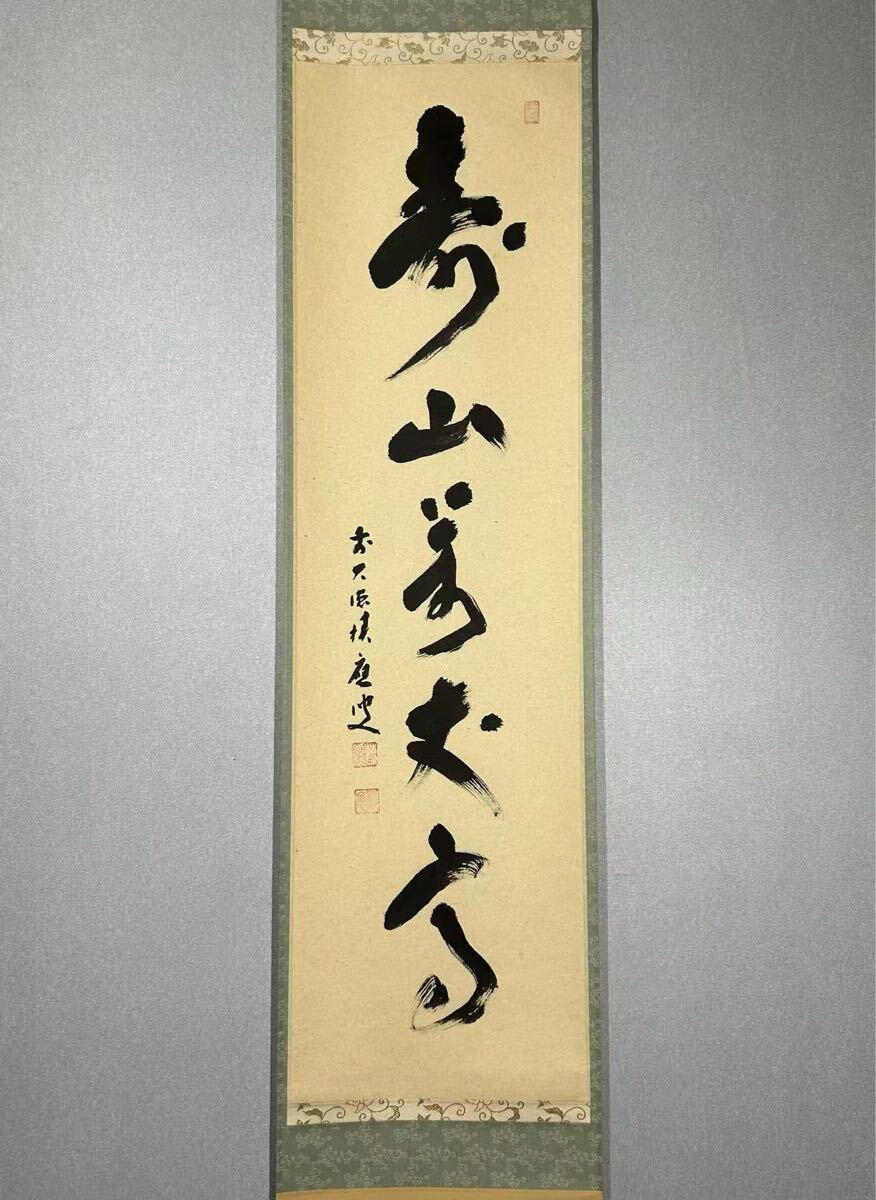 寿山萬丈高
前大徳積應叟